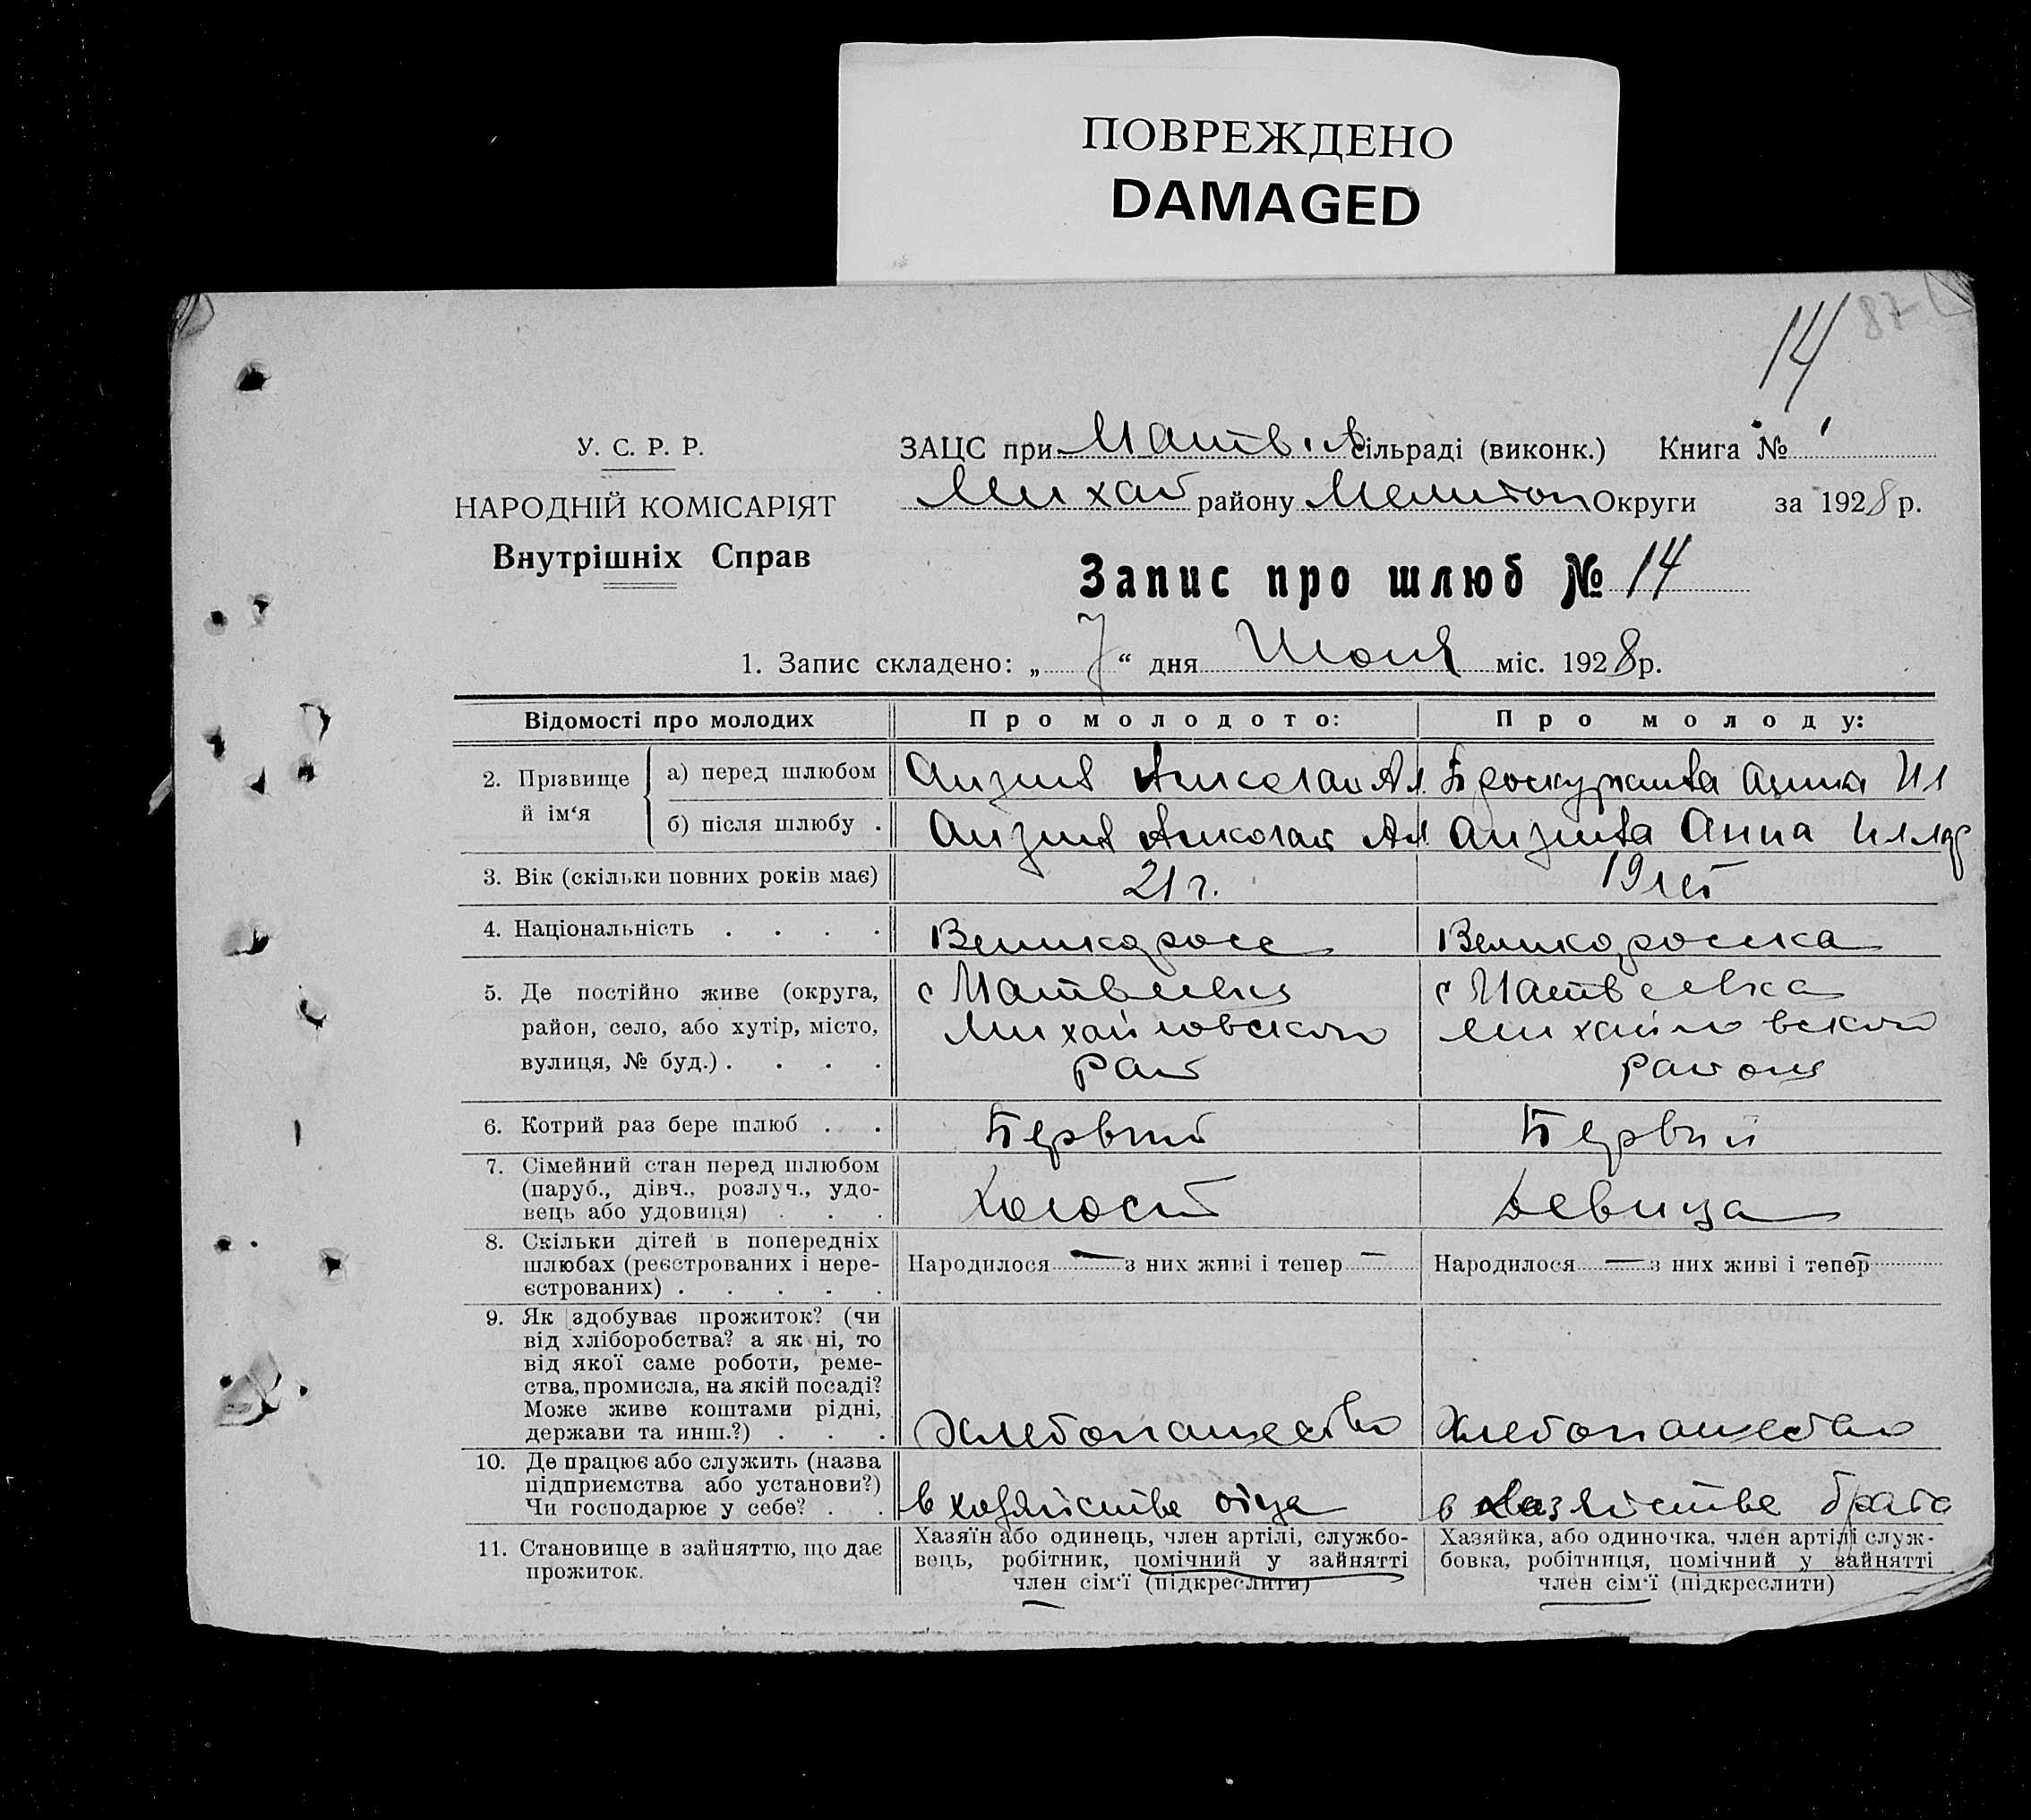 ПОВРЕЖДЕНО
DAMAGED
14 87
У. С. Р. Р.
НАРОДНІЙ КОМІСАРІЯТ
Внутрішніх Справ
ЗАЦС при Матв сільраді (виконк.) Книга № 1
Михай району Мелитоп Округи за 1928 р.
Запис про шлюб № 14
1. Запис складено: „ 7 “ дня Июня міс. 1928 р.
Відомості про молодих Про молодого: Про молоду:
2. Прізвище й ім‘я
а) перед шлюбом Николай Ал. Анна Ил
б) після шлюбу . Николай Ал Анна
3. Вік (скільки повних років має) 21 г. 19 лет
4. Національність . . . . Великоросс Великоросска
5. Де постійно живе (округа, район, село, або хутір, місто, вулиця, № буд.) . . . .
с Матвеевка
Михайловского
рай
с Матвеевка
Михайловского
района
6. Котрий раз бере шлюб . . Первый Первый
7. Сімейний стан перед шлюбом
(паруб., дівч., розлуч., удо-
вець або удовиця) . . . Холост Девица
8. Скільки дітей в попередніх
шлюбах (реєстрованих і нере-
єстрованих) . . . . .
Народилося — з них живі і тепер — Народилося — з них живі і тепер —
9. Як здобуває прожиток? (чи
від хліборобства? а як ні, то
від якої саме роботи, реме-
ства, промисла, на якій посаді?
Може живе коштами рідні,
держави та инш.?) . . . Хлебопашество Хлебопашество
10. Де працює або служить (назва
підприємства або установи?)
Чи господарює у себе? . . в хозяйстве отца в хозяйстве брата
11. Становище в зайняттю, що дає
прожиток.
Хазяїн або одинець, член артілі, службо-
вець, робітник, помічний у зайнятті
член сім‘ї (підкреслити)
Хазяйка, або одиночка, член артілі служ-
бовка, робітниця, помічний у зайнятті
член сім‘ї (підкреслити)